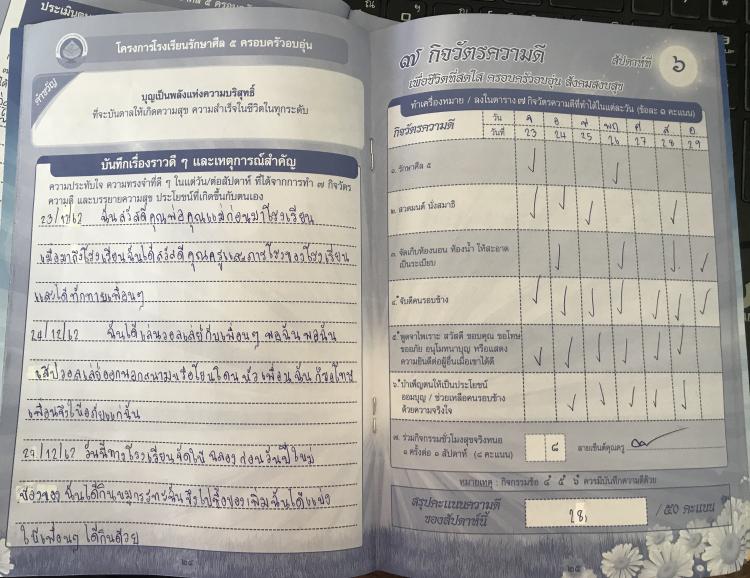 โครงการโรงเรียนรักษาศีล ๕ ครอบครัวอบอุ่น
คำขวัญ
บุญเป็นพลังแห่งความบริสุทธิ์
ที่จะบันดาลให้เกิดความสุข ความสำเร็จในชีวิตในทุกระดับ
บันทึกเรื่องราวดี ๆ และเหตุการณ์สำคัญ
ความประทับใจ ความทรงจำที่ดี ๆ ในแต่วัน/ต่อสัปดาห์ ที่ได้จากการทำ ๗ กิจวัตร
ความดี และบรรยายความสุข ประโยชน์ที่เกิดขึ้นกับตนเอง
23/12/62 ฉันสวัสดีคุณพ่อคุณแม่ก่อนมาโรงเรียน
เมื่อมาถึงโรงเรียนฉันได้สวัสดีคุณครูและภารโรงของโรงเรียน
และได้ทักทายเพื่อนๆ
24/12/62 ฉันได้เล่นวอลเลย์กับเพื่อนๆ พอฉัน
วอลเลย์ออกนอกสนาม โดนหัวเพื่อน ฉันก็ขอโทษ
เพื่อนจึงให้อภัยแก่ฉัน
27/12/62 วันนี้ทางโรงเรียนจัดให้ฉลองก่อนวันปีใหม่
ฉันได้กิน ฉันจึงไปซื้อของเพิ่มฉันได้แบ่ง
ให้เพื่อนๆ ได้กินด้วย
๒๔
๗ กิจวัตรความดี
สัปดาห์ที่ ๖
เพื่อชีวิตที่สดใส ครอบครัวอบอุ่น สังคมสงบสุข
ทำเครื่องหมาย / ลงในตาราง ๗ กิจวัตรความดีที่ทำได้ในแต่ละวัน (ข้อละ ๑ คะแนน)
กิจวัตรความดี
วัน จ อ พ พฤ ศ ส อ
วันที่ 23 24 25 26 27 28 29
๑. รักษาศีล ๕
๒. สวดมนต์ นั่งสมาธิ
๓. จัดเก็บห้องนอน ห้องน้ำ ให้สะอาด
เป็นระเบียบ
๔. จับดีคนรอบข้าง
๕. พูดจาไพเราะ สวัสดี ขอบคุณ ขอโทษ
ขออภัย อนุโมทนาบุญ หรือแสดง
ความยินดีต่อผู้อื่นเมื่อเขาได้ดี
๖. บำเพ็ญตนให้เป็นประโยชน์
ออมบุญ / ช่วยเหลือคนรอบข้าง
ด้วยความจริงใจ
๗. ร่วมกิจกรรมชั่วโมงสุขจริงหนอ
๑ ครั้งต่อ ๑ สัปดาห์ (๘ คะแนน)
๘
ลายเซ็นต์คุณครู
หมายเหตุ : กิจกรรมข้อ ๔ ๕ ๖ ควรมีบันทึกความดีด้วย
สรุปคะแนนความดี
ของสัปดาห์นี้
28
/ ๕๐ คะแนน
๒๕